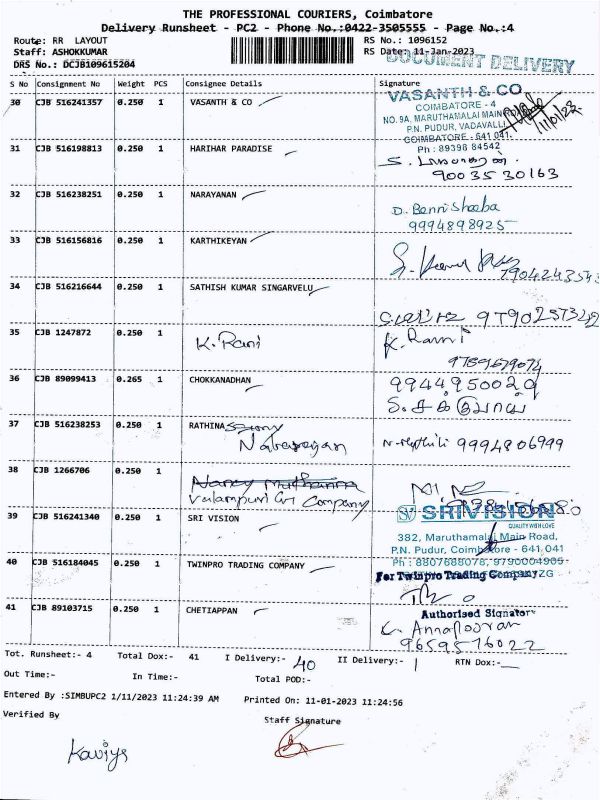 THE PROFESSIONAL COURIERS, Coimbatore
Delivery Runsheet - PC2 - Phone No.:0422-3505555 - Page No.:4
Route: RR LAYOUT
RS No.: 1096152
Staff: ASHOKKUMAR
RS Date: 11-Jan-2023
DRS No.: DCJB109615204
DOCUMENT DELIVERY
S No Consignment No Weight PCS Consignee Details Signature
30 CJB 516241357 0.250 1 VASANTH & CO
VASANTH & CO
COIMBATORE - 4
NO. 9A, MARUTHAMALAI MAIN ROAD
P.N. PUDUR, VADAVALLI
COIMBATORE - 641 041.
Ph : 89398 84542
11/01/23
31 CJB 516198813 0.250 1 HARIHAR PARADISE
90035 30163
32 CJB 516238251 0.250 1 NARAYANAN
D. Benni Sheeba
9994898925
33 CJB 516156816 0.250 1 KARTHIKEYAN
34 CJB 516216644 0.250 1 SATHISH KUMAR SINGARVELU
35 CJB 1247872 0.250 1 K. Rani
K. Rani
36 CJB 89099413 0.265 1 CHOKKANADHAN
9944950029
37 CJB 516238253 0.250 1 RATHINA
Natarajan
9994806999
38 CJB 1266706 0.250 1
Valampuri Company
39 CJB 516241340 0.250 1 SRI VISION
SRIVISION
QUALITY WITH LOVE
382, Maruthamalai Main Road,
P.N. Pudur, Coimbatore - 641 041
Ph : 8807688078, 9790004905
40 CJB 516184045 0.250 1 TWINPRO TRADING COMPANY
For Twinpro Trading Company
Authorised Signatory
41 CJB 89103715 0.250 1 CHETIAPPAN
C. Annapooran
9659576022
Tot. Runsheet:- 4 Total Dox:- 41 I Delivery:- 40 II Delivery:- 1 RTN Dox:-
Out Time:- In Time:- Total POD:-
Entered By :SIMBUPC2 1/11/2023 11:24:39 AM Printed On: 11-01-2023 11:24:56
Verified By
Staff Signature
Kaviya